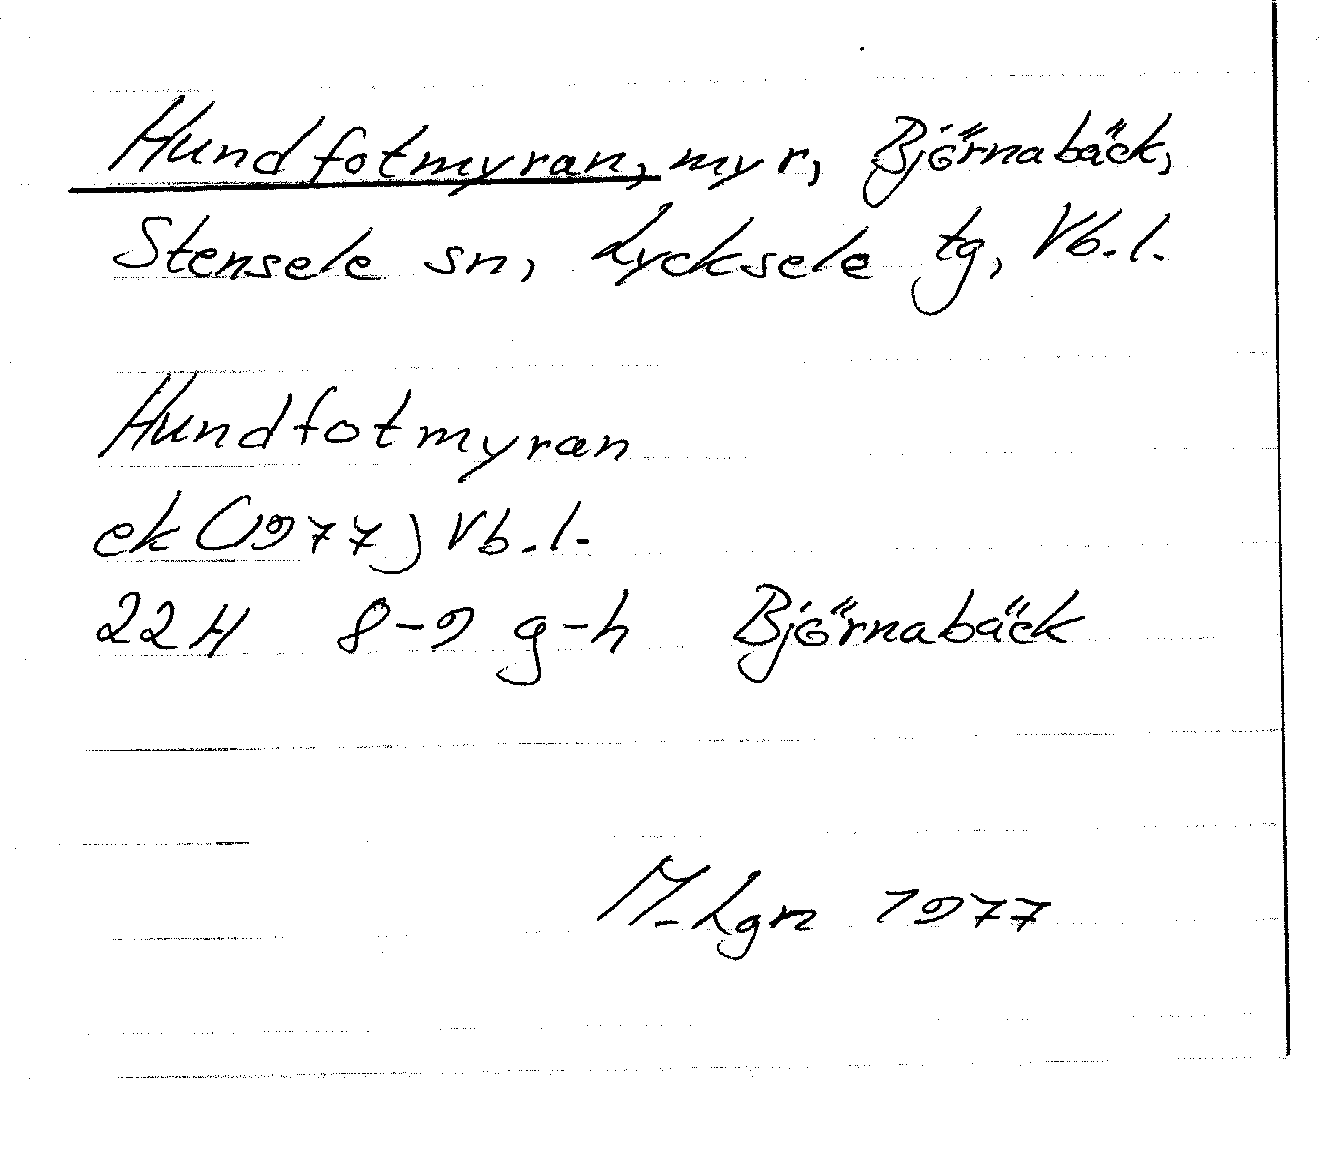 Hundfotmyran, myr, Björnabäck,
Stensele sn, Lycksele tg, Vb.l.
Hundfotmyran
ek (1977) Vb.l.
22H 8-9 g-h Björnabäck
M-Lgn 1977